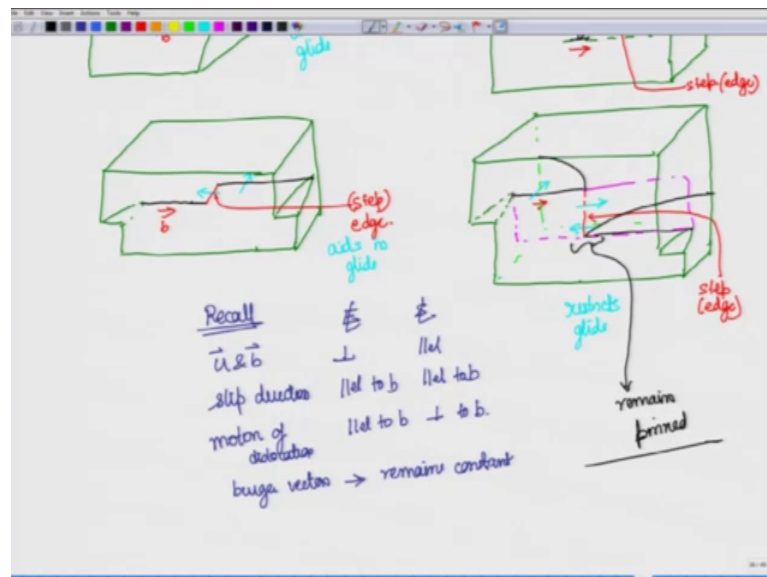 b
glide
step (edge)
b
(step)
edge.
aids no
glide
restricts
glide
step
(edge)
remain
pinned
Recall
u & b ⊥ llel
slip direction llel to b llel to b
motion of llel to b ⊥ to b.
dislocation
burger vectors → remains constant